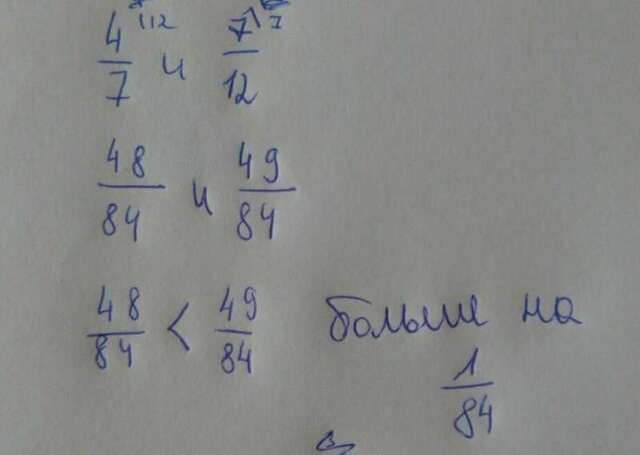 4/7 и 7/12
48/84 и 49/84
48/84 < 49/84 больше на
1/84